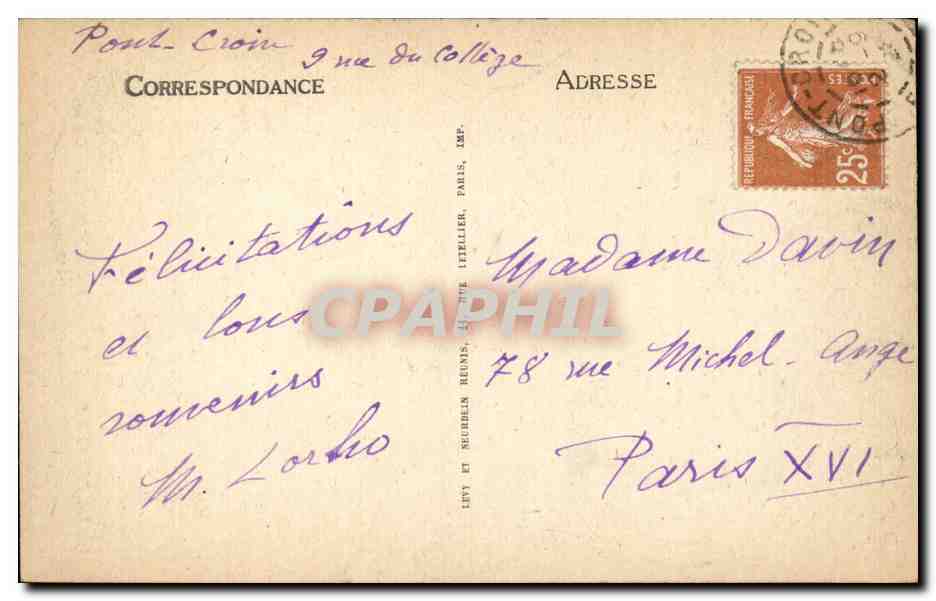 Pont-Croix
9 rue du Collège
CORRESPONDANCE
ADRESSE
RÉPUBLIQUE FRANÇAISE
POSTES
25c
PONT-CROIX
Félicitations
et bons
souvenirs
M. Lorho
LEVY ET NEURDEIN REUNIS, 44, RUE LETELLIER, PARIS, IMP.
Madame Davin
78 rue Michel-Ange
Paris XVI
CPAPHIL